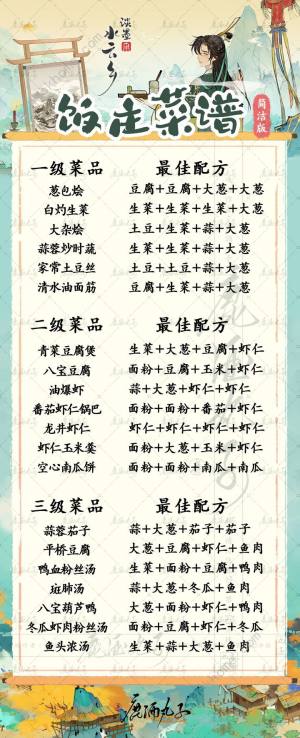 淡墨
水云乡
饭走菜谱
简洁版
一级菜品 最佳配方
葱包烩 豆腐+豆腐+大葱+大葱
白灼生菜 生菜+生菜+生菜+大葱
大杂烩 土豆+生菜+蒜+大葱
蒜蓉炒时蔬 生菜+生菜+蒜+大葱
家常土豆丝 土豆+土豆+蒜+大葱
清水油面筋 豆腐+生菜+蒜+大葱
二级菜品 最佳配方
青菜豆腐煲 生菜+大葱+豆腐+虾仁
八宝豆腐 面粉+豆腐+玉米+虾仁
油爆虾 蒜+大葱+虾仁+虾仁
番茄虾仁锅巴 面粉+面粉+番茄+虾仁
龙井虾仁 虾仁+虾仁+虾仁+虾仁
虾仁玉米羹 面粉+大葱+玉米+虾仁
空心南瓜饼 面粉+面粉+南瓜+南瓜
三级菜品 最佳配方
蒜蓉茄子 蒜+大葱+茄子+茄子
平桥豆腐 大葱+豆腐+虾仁+鱼肉
鸭血粉丝汤 生菜+豆腐+虾仁+鱼肉
斑肺汤 蒜+大葱+冬瓜+鱼肉
八宝葫芦鸭 大葱+面粉+虾仁+鱼肉
冬瓜虾肉粉丝汤 面粉+豆腐+虾仁+冬瓜
鱼头浓汤 生菜+蒜+大葱+鱼肉
鹿洒丸子